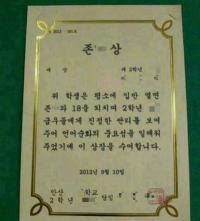 존 상
제 2학년
위 학생은 평소에 입만 열면
존 와 18을 외치며 2학년
급우들에게 진정한 싼티를 보여
주어 언어순화의 중요성을 일깨워
주었기에 이 상장을 수여합니다.
2012년 9월 10일
안산 학교
2학년 담임